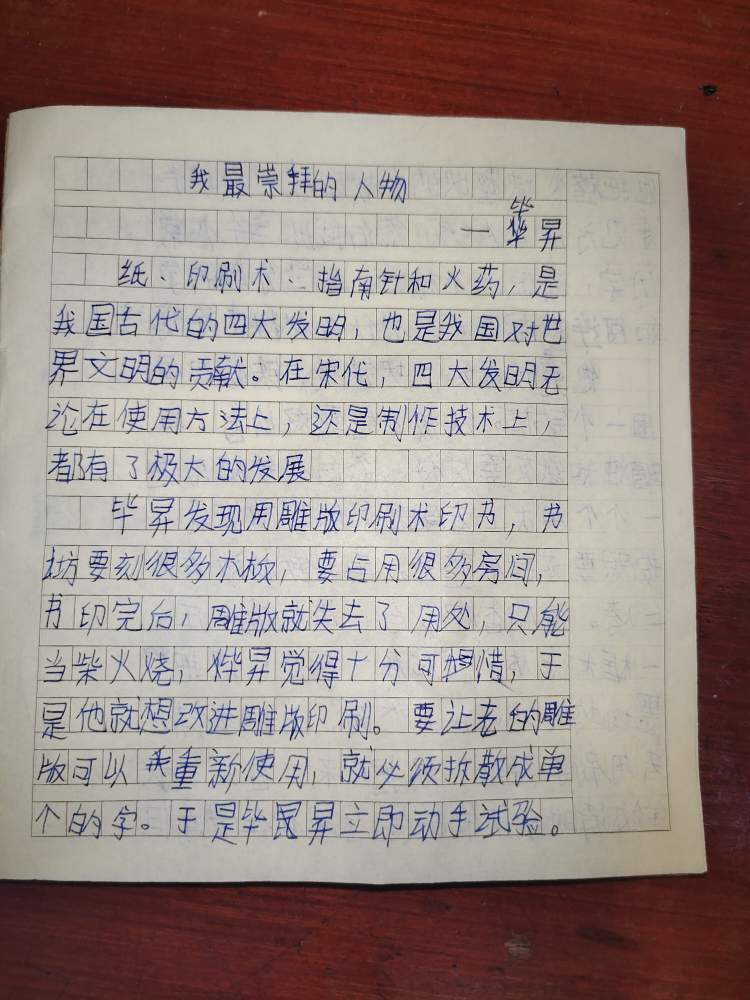 我最崇拜的人物
—毕昇
纸、印刷术、指南针和火药，是
我国古代的四大发明，也是我国对世
界文明的贡献。在宋代，四大发明无
论在使用方法上，还是制作技术上，
都有了极大的发展
毕昇发现用雕版印刷术印书，书
坊要刻很多木板，要占用很多房间，
书印完后，雕版就失去了用处，只能
当柴火烧，烨昇觉得十分可惜，于
是他就想改进雕版印刷。要让老的雕
版可以重新使用，就必须拆散成单
个的字。于是毕昇立即动手试验。